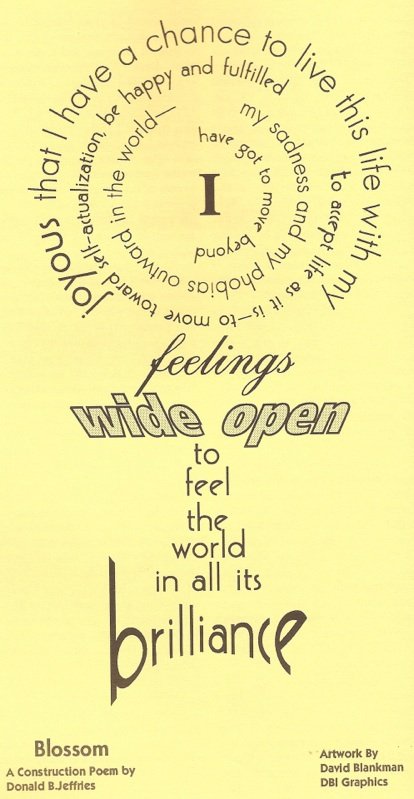 I
have got to move beyond
my sadness and my phobias outward in the world—
to accept life as it is—to move toward self-actualization, be happy and fulfilled
joyous that I have a chance to live this life with my
feelings
wide open
to
feel
the
world
in all its
brilliance
Blossom
A Construction Poem by
Donald B.Jeffries
Artwork By
David Blankman
DBI Graphics